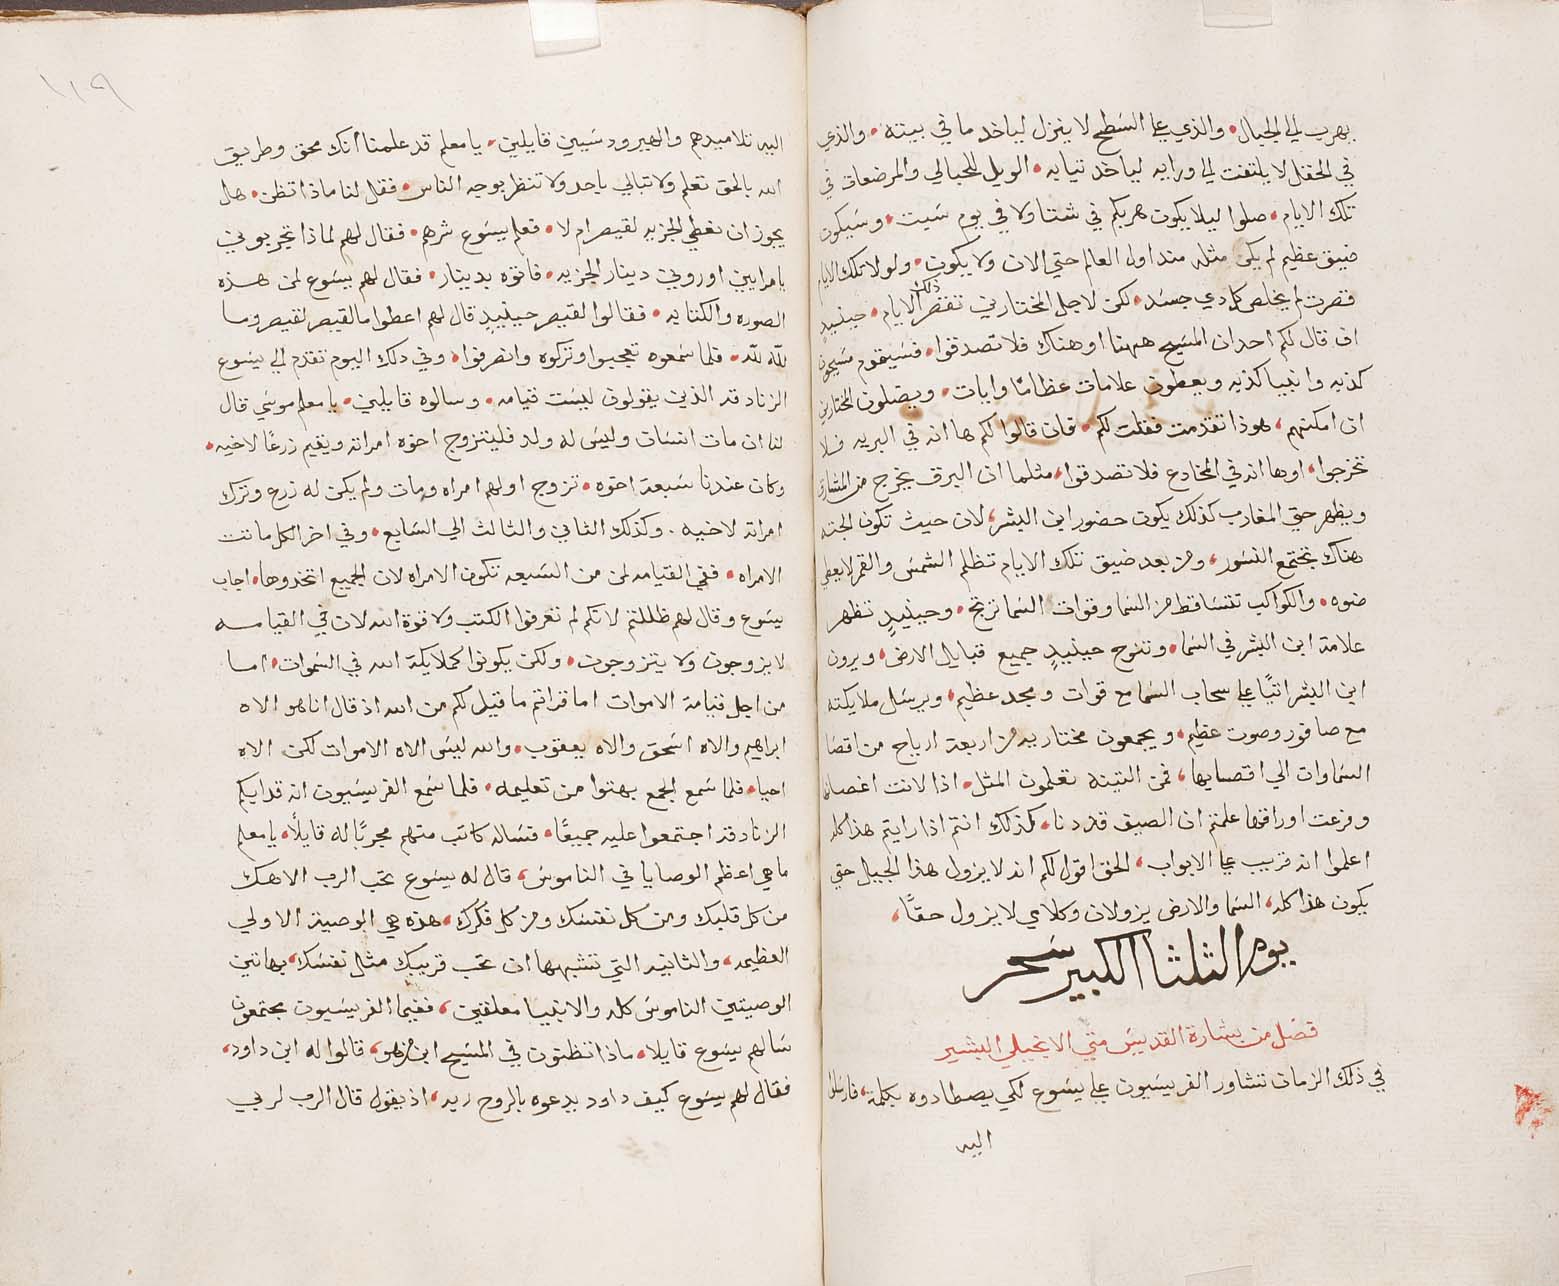 يهرب الي الجبال. والذي علي السطح لا ينزل لياخد ما في بيته. والذي
في الحقل لا يلتفت الي ورايه لياخد تيابه. الويل للحبالي والمرضعات في
تلك الايام. صلوا ليلا يكون هربكم في شتا ولا في يوم سبت. وسيكون
ضيق عظيم لم يكن مثله مند اول العالم حتي الان ولا يكون. ولولا تلك الايام
قصرت لم يخلص كل دي جسد. لكن لاجل المختارين تقصر تلك الايام. حينيدٍ
ان قال لكم احد ان المسيح ههنا او هناك فلا تصدقوا. فسيقوم مسيحون
كذبه وانبيا كذبه ويعطون علامات عظامًا وايات. ويضلون المختارين
ان امكنهم، هوذا تقدمت فقلت لكم. فان قالوا لكم ها انه في البريه فلا
تخرجوا، اوها انه في المخادع فلا تصدقوا، مثلما ان البرق يخرج من المشارق
ويظهر حتي المغارب كذلك يكون حضور ابن البشر، لان حيث تكون الجثه
هناك تجتمع النسور، ومن بعد ضيق تلك الايام تظلم الشمس والقمر لا يعطي
ضوه. والكواكب تتساقط من السما وقوات السما ترتج. وحينيدٍ تظهر
علامة ابن البشر في السما. وتنوح حينيدٍ جميع قبايل الارض، ويرون
ابن البشر اتيًا علي سحاب السما مع قوات ومجد عظيم، ويرسل ملايكته
مع صافور وصوت عظيم، ويجمعون مختاريه من اربعة ارياح من اقصا
السماوات الي اقصايها، فمن التينه تعلمون المثل. اذا لانت اغصانها
وفرعت اوراقها علمتم ان الصيف قد دنا، كذلك انتم اذا رايتم هذا كله
اعلموا انه قريب علي الابواب، الحق اقول لكم انه لا يزول هذا الجيل حتي
يكون هذا كله، السما والارض يزولان وكلامي لا يزول حقًا،
يوم الثلثا الكبير سحر
فصل من بشارة القديس متي الانجيلي البشير
في ذلك الزمان تشاور الفريسيون علي يسوع لكي يصطادوه بكلمة، فارسلوا
اليه
١١٩
اليه تلاميدهم والهيرودسيين قايلين، يا معلم قد علمنا انك محق وطريق
الله بالحق تعلم ولا تبالي باحد ولا تنظر بوجه الناس. فقل لنا ماذا تظن. هل
يجوز ان نعطي الجزيه لقيصر ام لا، فعلم يسوع شرهم. فقال لهم لماذا تجربوني
يا مرايين اوروني دينار الجزيه، فاتوه بدينار، فقال لهم يسوع لمن هذه
الصوره والكتابه. فقالوا لقيصر حينيدٍ قال لهم اعطوا ما لقيصر لقيصر وما
لله لله. فلما سمعوه تعجبوا وتركوه وانصرفوا، وفي دلك اليوم تقدم الي يسوع
الزنادقه الذين يقولون ليست قيامه، وسالوه قايلين، يا معلم موسي قال
لنا ان مات انسان وليس له ولد فليتزوج اخوه امراته ويقيم زرعًا لاخيه.
وكان عندنا سبعة اخوه. تزوج اولهم امراه ومات ولم يكن له زرع وترك
امراته لاخيه. وكذلك الثاني والثالث الي السابع، وفي اخر الكل ماتت
الامراه. ففي القيامه لمن من السبعه تكون الامراه لان الجميع اتخدوها، اجاب
يسوع وقال لهم ظللتم لانكم لم تعرفوا الكتب ولا قوة الله لان في القيامه
لا يزوجون ولا يتزوجون. ولكن يكونوا كملايكة الله في السموات، اما
من اجل قيامة الاموات اما قراتم ما قيل لكم من الله اذ قال انا هو الاه
ابراهيم والاه اسحق والاه يعقوب. والله ليس الاه الاموات لكن الاه
احيا، فلما سمع الجمع بهتوا من تعليمه، فلما سمع الفريسيون انه قد ابكم
الزنادقه اجتمعوا عليه جميعًا. فساله كاتب منهم مجربًا له قايلًا، يا معلم
ما هي اعظم الوصايا في الناموس، قال له يسوع تحب الرب الاهك
من كل قلبك ومن كل نفسك ومن كل فكرك، هذه هي الوصية الاولي
العظيمه، والثانيه التي تشبهها ان تحب قريبك مثل نفسك، بهاتين
الوصيتين الناموس كله والانبيا معلقين، ففيما الفريسيون مجتمعون
سالهم يسوع قايلا، ماذا تظنون في المسيح ابن من هو، قالوا له ابن داود،
فقال لهم يسوع كيف داود يدعوه بالروح ربه، اذ يقول قال الرب لربي